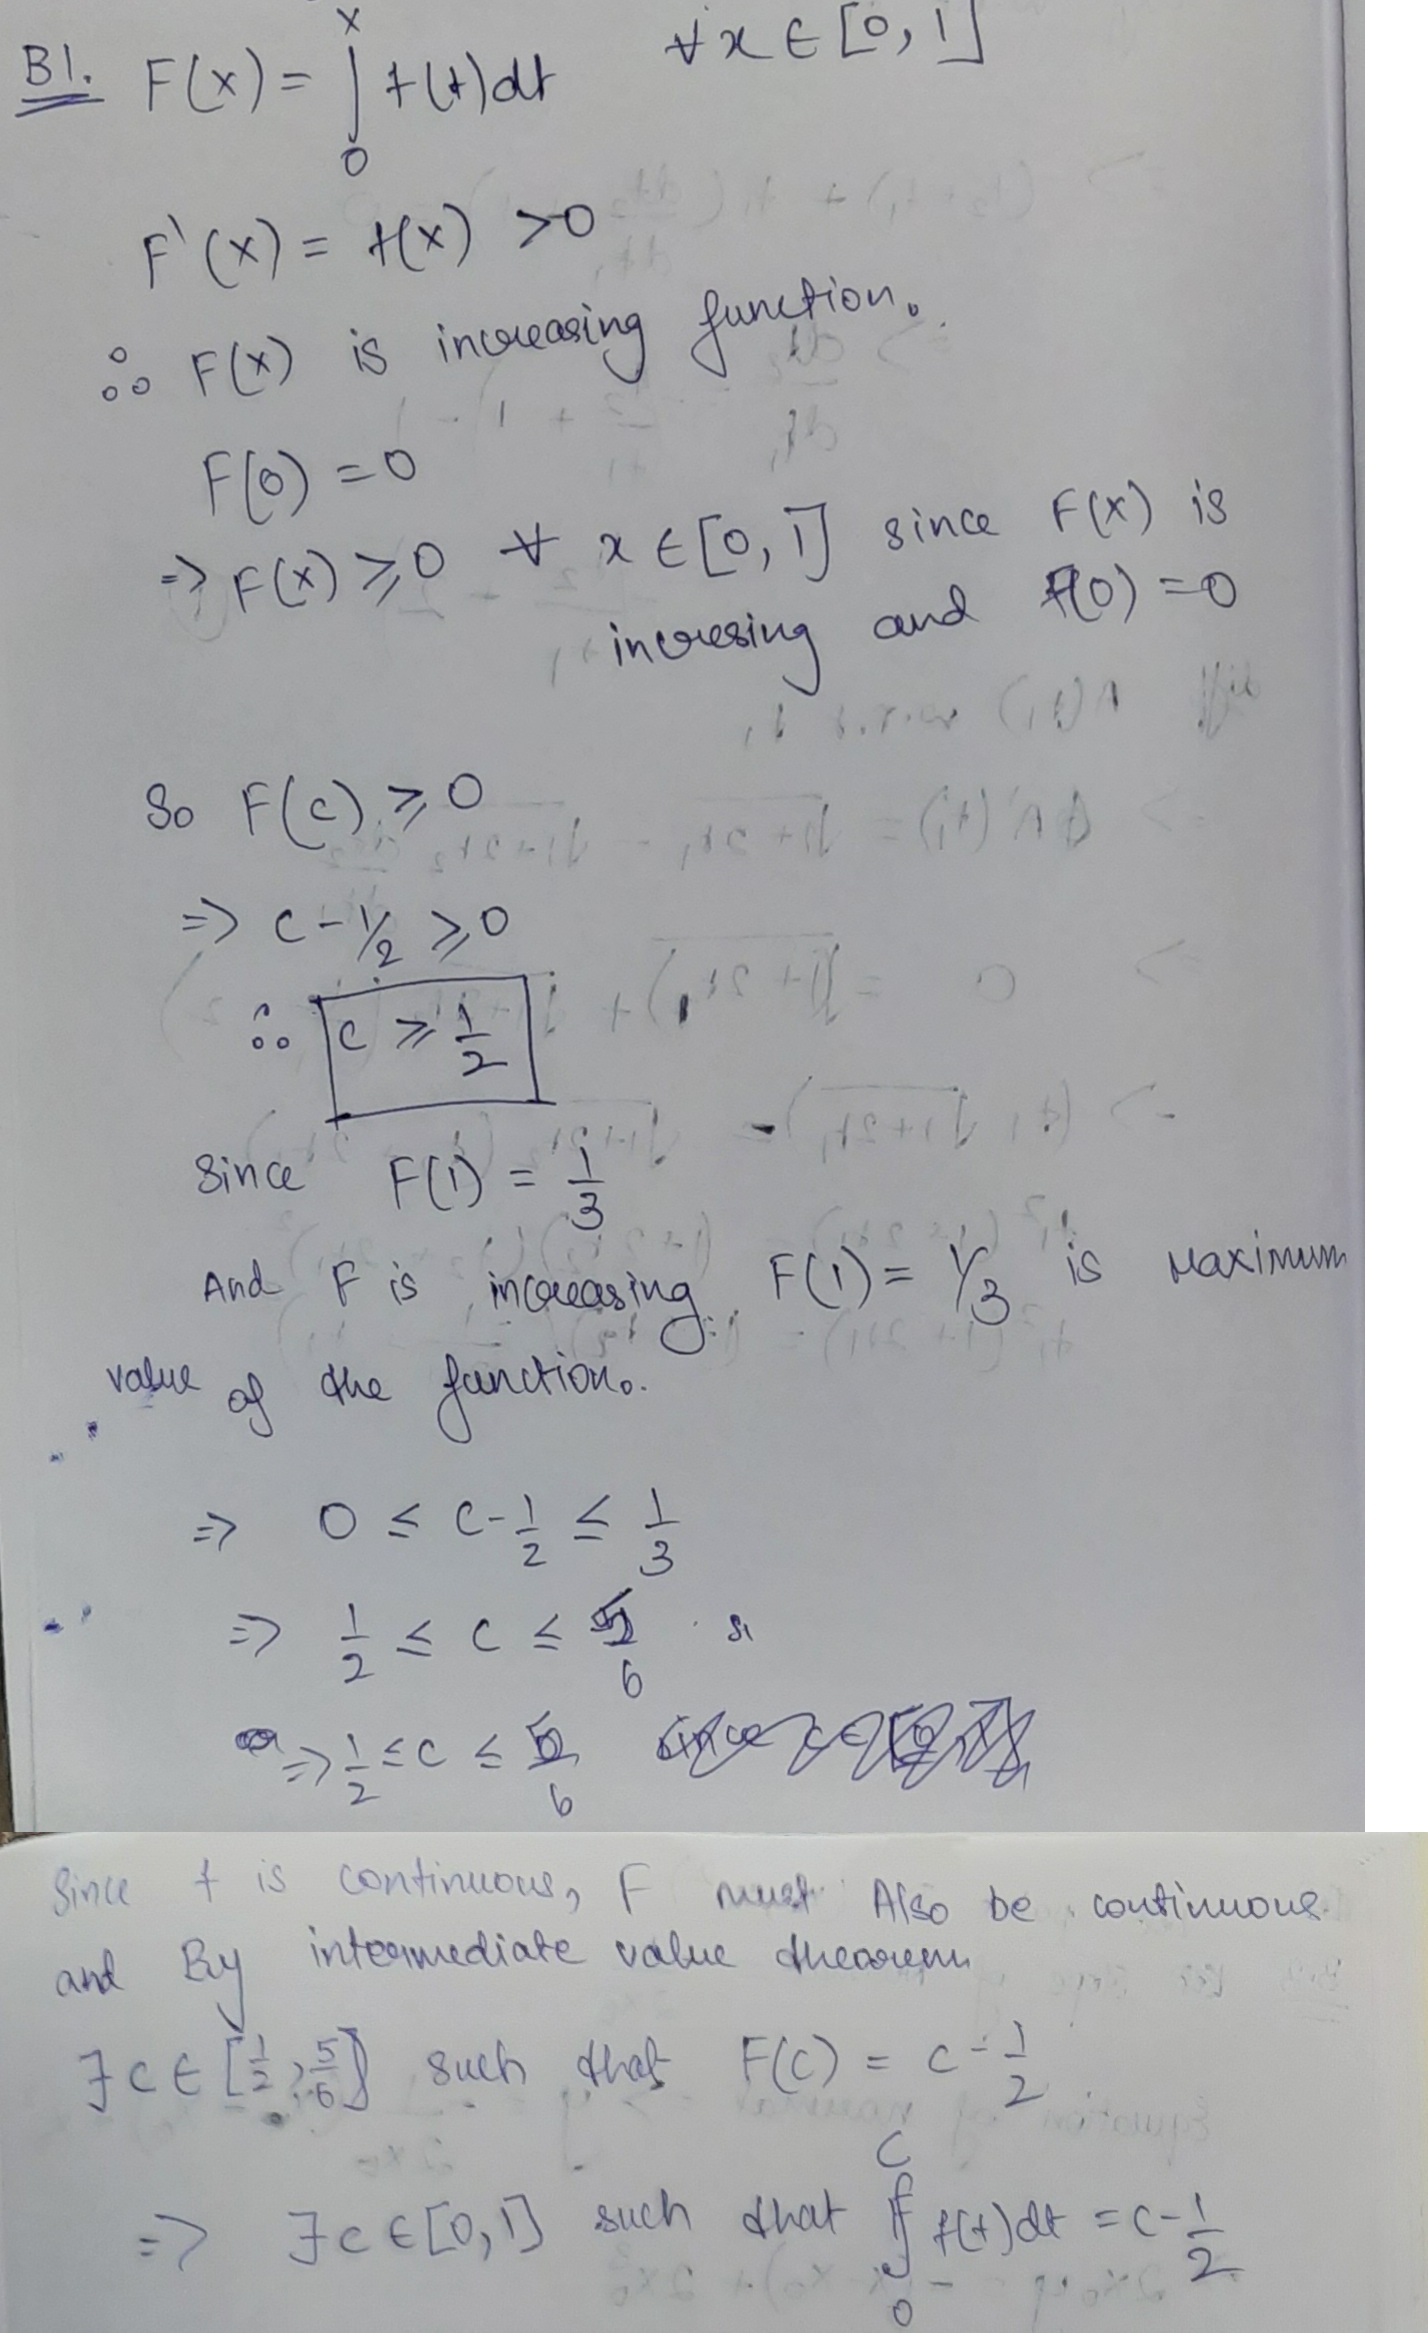 B1. F(x) = ∫₀ˣ f(t)dt ∀ x ∈ [0, 1]
F'(x) = f(x) >0
∴ F(x) is increasing function.
F(0) = 0
=> F(x) ≥ 0 ∀ x ∈ [0, 1] since F(x) is
incresing and F(0) = 0
So F(c) ≥ 0
=> c - 1/2 ≥ 0
∴ c ≥ 1/2
Since F(1) = 1/3
And F is increasing F(1) = 1/3 is Maximum
value of the function.
=> 0 ≤ c - 1/2 ≤ 1/3
=> 1/2 ≤ c ≤ 5/6
=> 1/2 ≤ c ≤ 5/6
Since f is continuous, F must Also be continuous
and By intermediate value theorem
∃ c ∈ [1/2, 5/6] such that F(c) = c - 1/2
=> ∃ c ∈ [0, 1] such that ∫₀ᶜ f(t)dt = c - 1/2